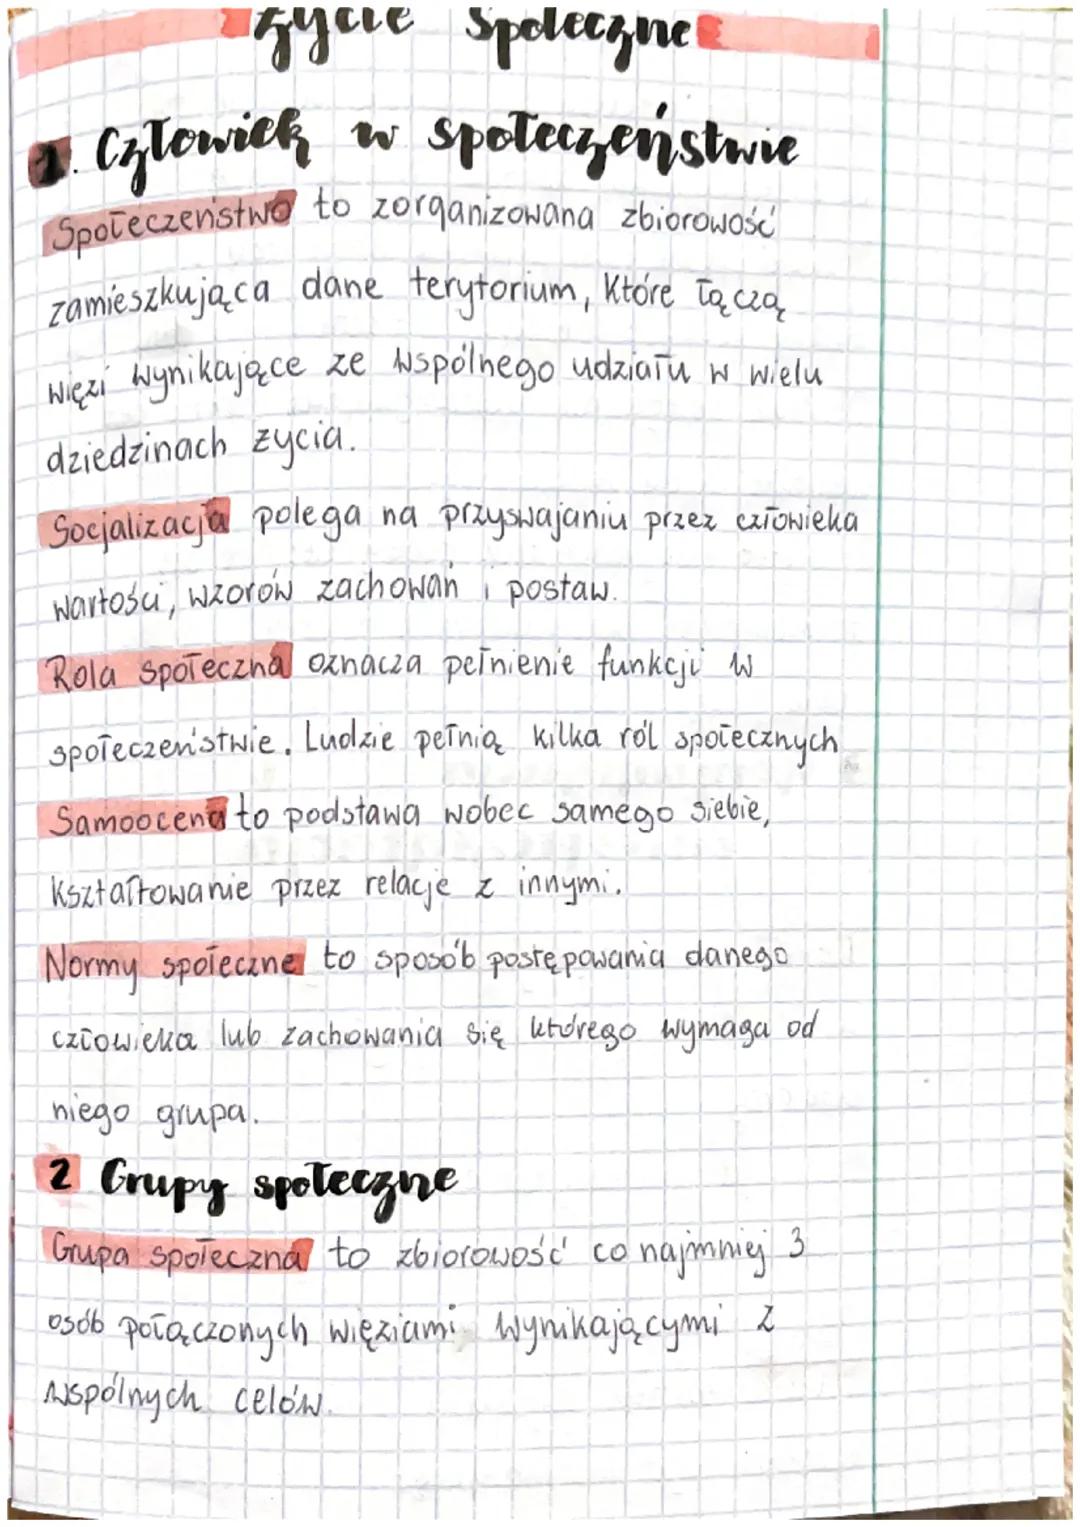 życie społeczne
1. Człowiek w społeczeństwie
Społeczeństwo to zorganizowana zbiorowość
zamieszkująca dane terytorium, które łączą
więzi wynikające ze wspólnego udziału w wielu
dziedzinach życia.
Socjalizacja polega na przyswajaniu przez człowieka
wartości, wzorów zachowań i postaw.
Rola społeczna oznacza pełnienie funkcji w
społeczeństwie. Ludzie pełnią kilka ról społecznych
Samoocena to podstawa wobec samego siebie,
kształtowanie przez relacje z innymi.
Normy społeczne to sposób postępowania danego
człowieka lub zachowania się którego wymaga od
niego grupa.
2 Grupy społeczne
Grupa społeczna to zbiorowość co najmniej 3
osób połączonych więziami wynikającymi z
wspólnych celów.